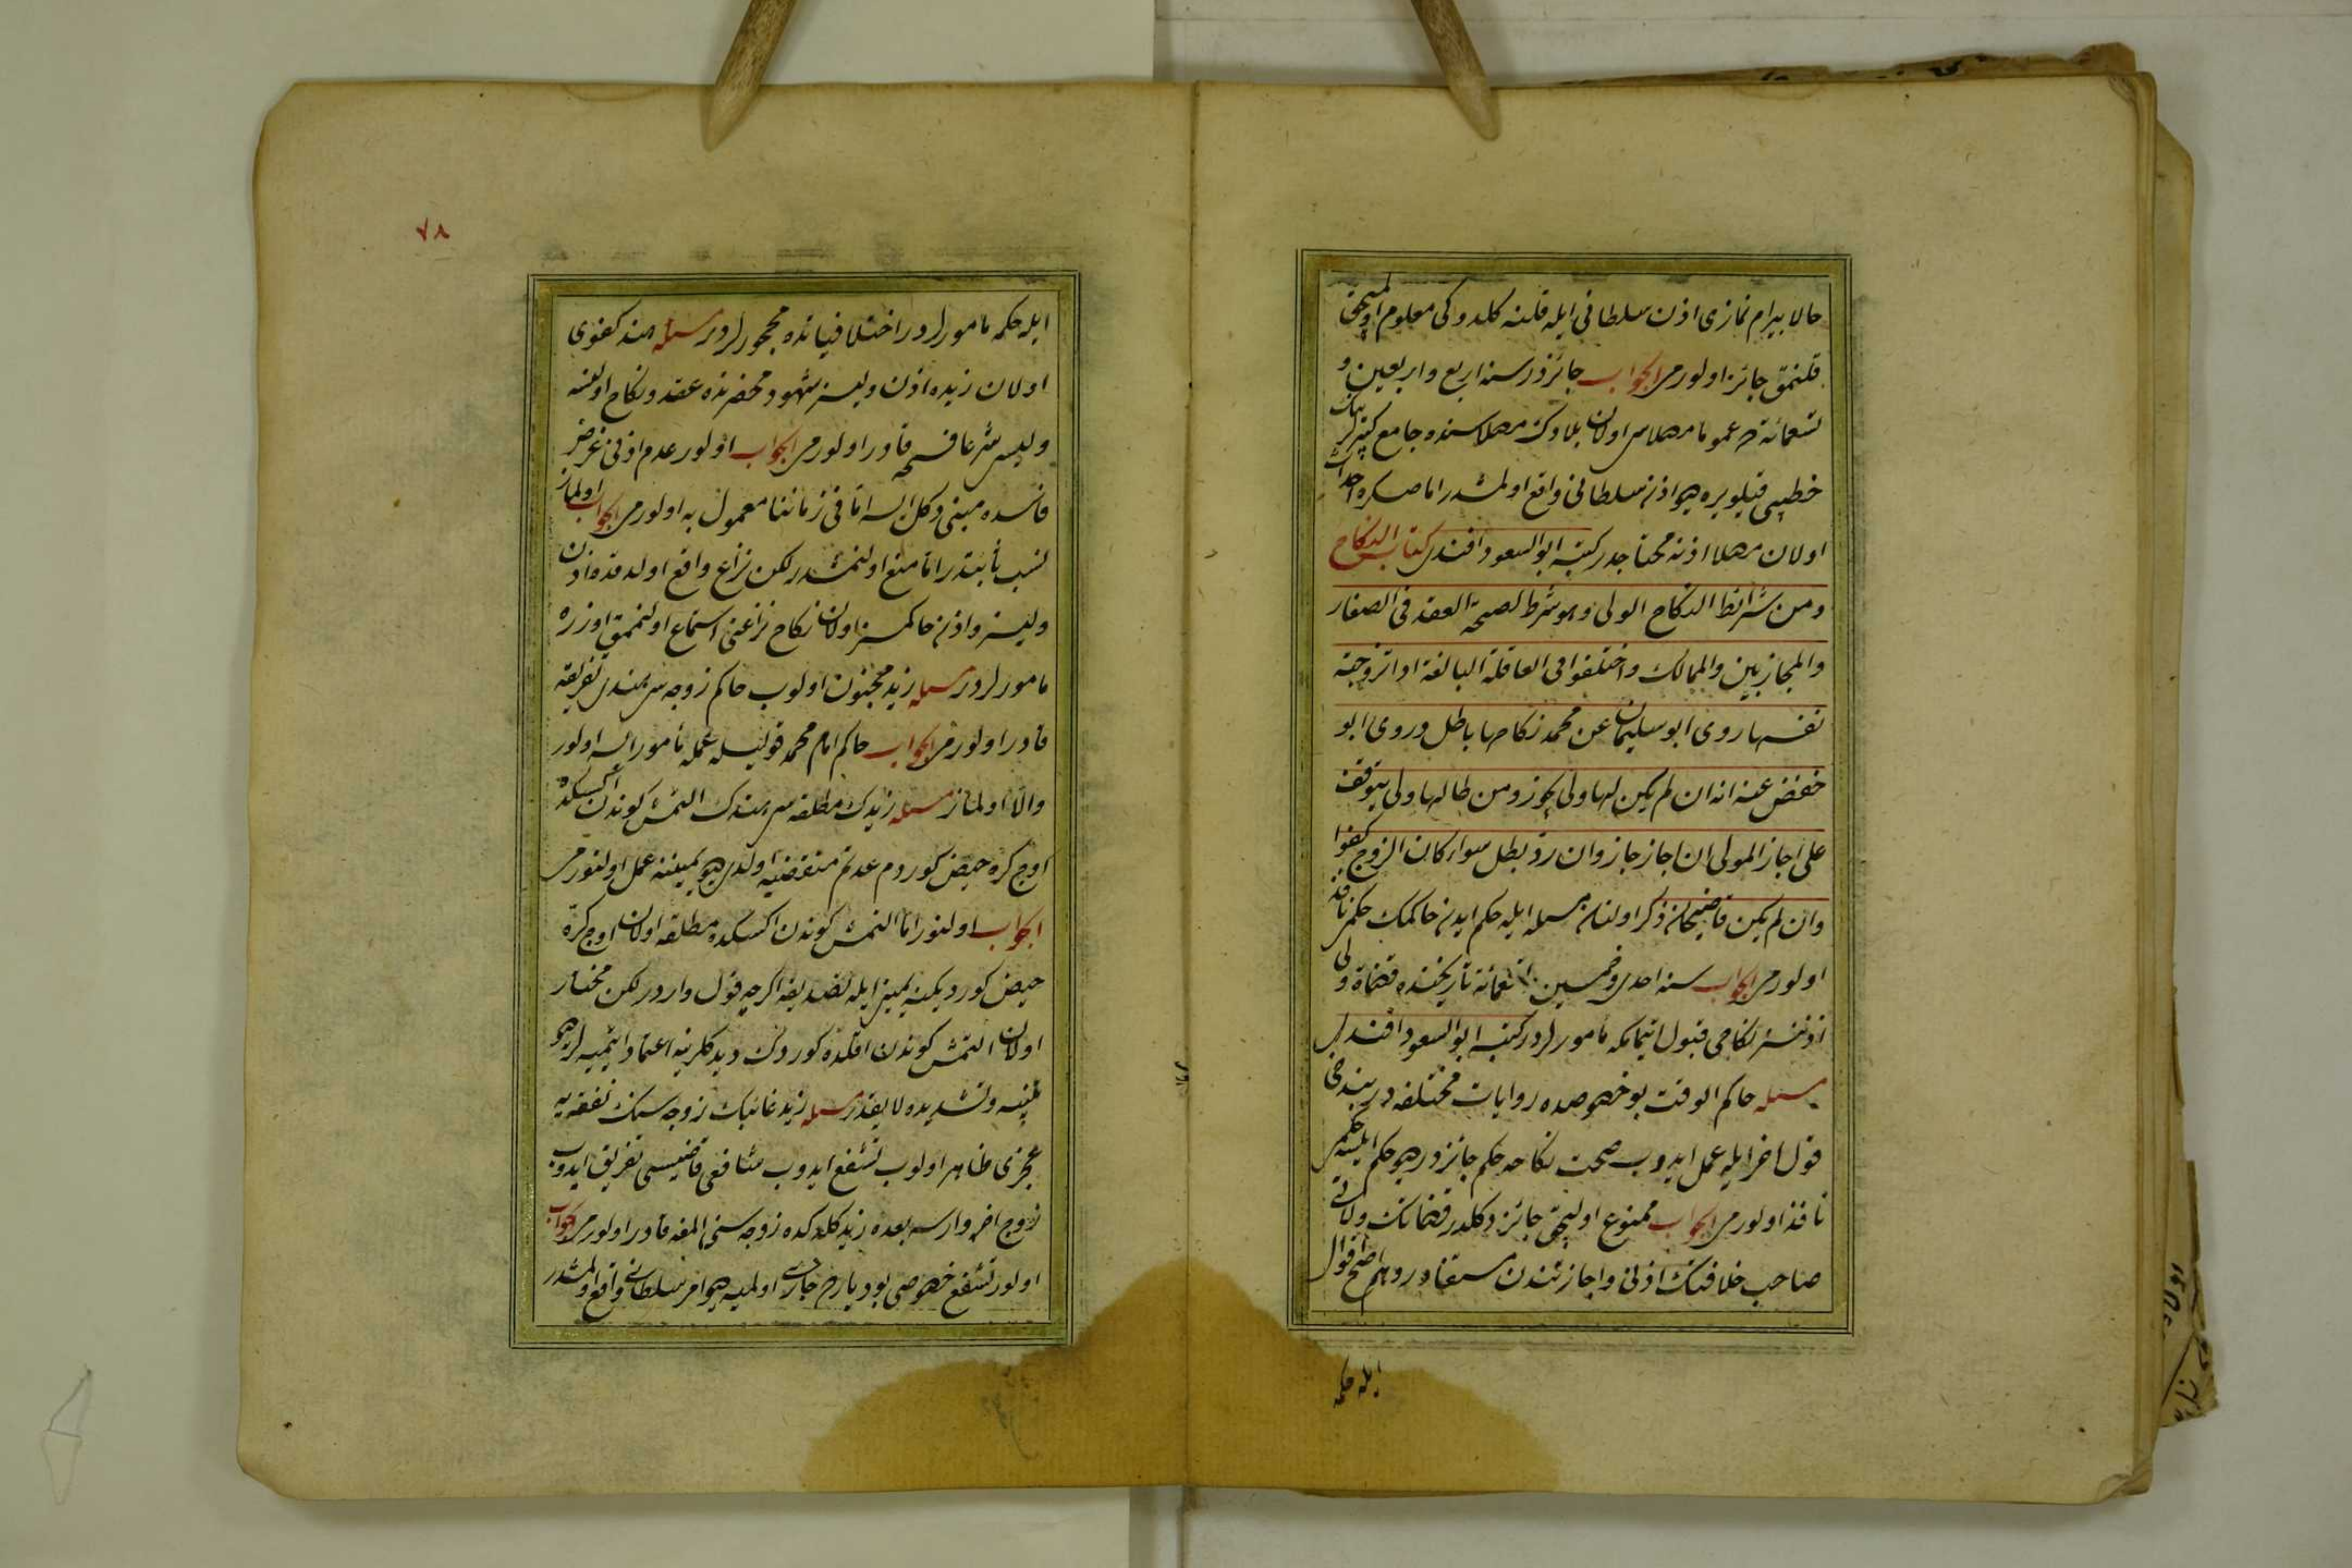 حالا بیرام نمازی اذن سلطانی ایله قلنه کلدوکی معلوم اولیجق
قلنمق جائز اولورمی الجواب جائزدر سنه اربع و اربعین و
تسعمائة ده عموما مصلاسی اولان بلادک مصلاسنده جامع کبیرلرینک
خطیبی قیلویره دیو اذن سلطانی واقع اولمشدر اما صکره احداث
اولان مصلا اذنه محتاجدر کتبه ابو السعود افندی کتاب النکاح
ومن شرائط النکاح الولی وهو شرط لصحة العقد فی الصغار
والمجانین والممالک واختلفوا فی العاقلة البالغة اذا تزوجت
نفسها روی ابو سلیمان عن محمد نکاحها باطل وروی ابو
حفض عنه انه ان لم یکن لها ولی یجوز ومن طا لها ولی یتوقف
علی اجاز المولی ان اجاز جاز وان رد بطل سواء کان الزوج کفوا
وان لم یکن قاضیخان ذکر اولنان مسئله ایله حکم ایدن حاکمک حکمی نافذ
اولورمی الجواب سنه احدی وخمسین وتسعمائة تاریخنده قضاة ولی
اذننسز نکاحی قبول ایتمامکه مأمورلردر کتبه ابو السعود افندی
مسئله حاکم الوقت بو خصوصده روایات مختلفه در
قول اخر ایله عمل ایدوب صحت نکاحه حکم جائزدر دیو حکم ایلسه حکمی
نافذ اولورمی الجواب ممنوع اولیجق جائز دکلدر قضاتک ولایتی
صاحب خلافتک اذنی واجازتندن مستفاددر وهم اصح اقوال
ایله حکمه
٧٨
ایله حکمه مأمورلردر اختلافیاتده محجورلردر مسئله هند کفوی
اولان زیده اذن ولیسز شهود محضرنده عقد ونکاح اولنسه
ولیسی شرعا فسخه قادر اولورمی الجواب اولور عدم اذنی غرض
فاسده مبنی دکل ایسه اما فی زماننا معمول به اولورمی الجواب اولماز
نسب ثابتدر اما منع اولنمشدر لکن نزاع واقع اولدقده اذن
ولیسز واذن حاکمسز اولان نکاح نزاعنی استماع اولنممق اوزره
مأمورلردر مسئله زید مجنون اولوب حاکم زوجه سی هندی تفریقه
قادر اولورمی الجواب حاکم امام محمد قولیله عمله مأمور ایسه اولور
والا اولماز مسئله زیدک مطلقه سی هندک التمش کوندن اکسکده
اوج کره حیض کوردم عدتم منقضیه اولدی دیو یمیننه عمل اولنورمی
الجواب اولنور اما التمش کوندن اکسکده مطلقه اولان اوج کره
حیض کوردیکینه یمینی ایله تصدیقه اکرچه قول واردر لکن مختار
اولان التمش کوندن اقلده کوردک دیدکلرینه اعتماد ایتمیه لر دیو
تنبیه وتشدیده لایقدر مسئله زید غائبک زوجه سنک نفقه یه
عجزی ظاهر اولوب تشفع ایدوب شافعی قاضیسی تفریق ایدوب
زوج اخره وارسه بعده زید کلدکده زوجه سنی المغه قادر اولورمی الجواب
اولور تشفع خصوصی بو دیارده جاری اولمیه دیو امر سلطانی واقع اولمشدر